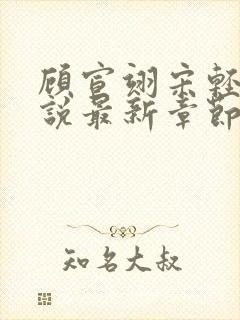 顾宣翊宋轻
說最新章節
知名大叔